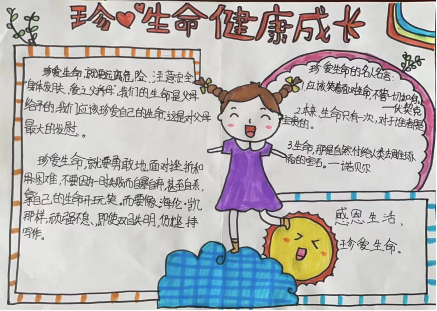 珍❤生命健康成长
珍爱生命,就要远离危险、注意安全。
身体发肤、受之父母。我们的生命是父母
给予的,我们应该珍爱自己的生命,这是对父母
最大的
珍爱生命,就要勇敢地面对挫折和
困难,不要因为一时失败而自暴自弃,甚至
拿自己的生命开玩笑。而要像海伦·凯
那样,顽强不息、即使双目失明,仍坚持
写作。
珍爱生命的名人名言:
应该笑着面对生活,不管一切如何。
—伏契克
2.本来,生命只有一次,对于谁都是
宝贵的。
3.生命,那是自然付给人类去雕琢
的宝石。—诺贝尔
感恩生活、
珍爱生命。